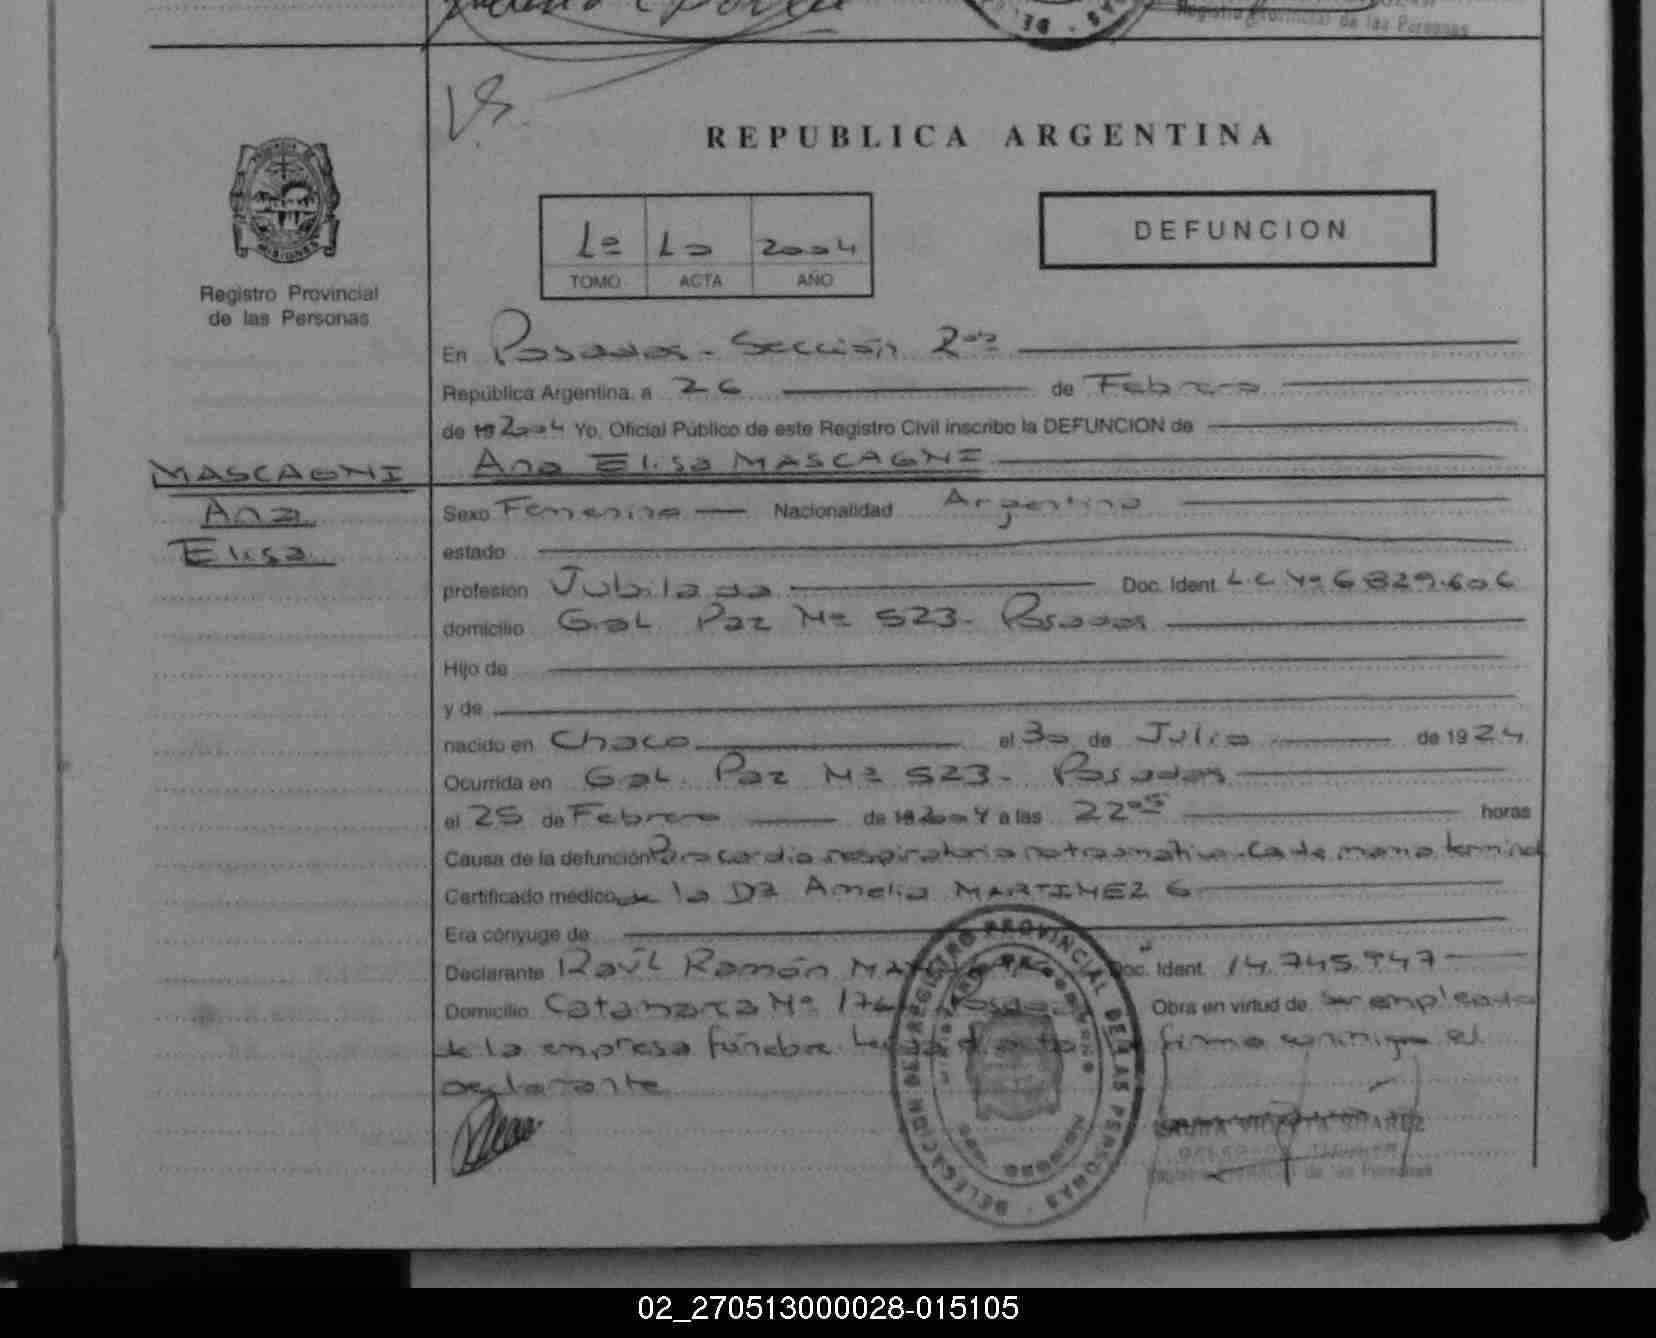 Registro Provincial de las Personas
V8.
REPUBLICA ARGENTINA
1º 10 2004
TOMO ACTA AÑO
DEFUNCION
MISIONES
Registro Provincial
de las Personas
En Posadas - Sección 2da
República Argentina, a 26 de Febrero
de 19 2004 Yo, Oficial Público de este Registro Civil inscribo la DEFUNCION de
MASCAGNI Ana Elisa MASCAGNI
Ana
Elisa
Sexo Femenino Nacionalidad Argentina
estado
profesión Jubilada Doc. Ident. L.C Nº 6.829.606
domicilio Gral Paz Nº 523 - Posadas
Hijo de
y de
nacido en Chaco el 30 de Julio de 1924
Ocurrida en Gral. Paz Nº 523 - Posadas
el 25 de Febrero de 19 2004 a las 22 05 horas
Causa de la defunción Paro cardio respiratorio no traumatico - Ca de mama terminal
Certificado médico de la Dra Amelia MARTINEZ G
Era cónyuge de
Declarante Raúl Ramón Doc. Ident. 14.745.947
Domicilio Catamarca Nº Posadas Obra en virtud de Ser empleado
de la empresa fúnebre. Leida el acta firma conmigo el
declarante
DELEGACION DEL REGISTRO PROVINCIAL DE LAS PERSONAS
LAURA VIOLETA SUAREZ
Registro Provincial de las Personas
02_270513000028-015105